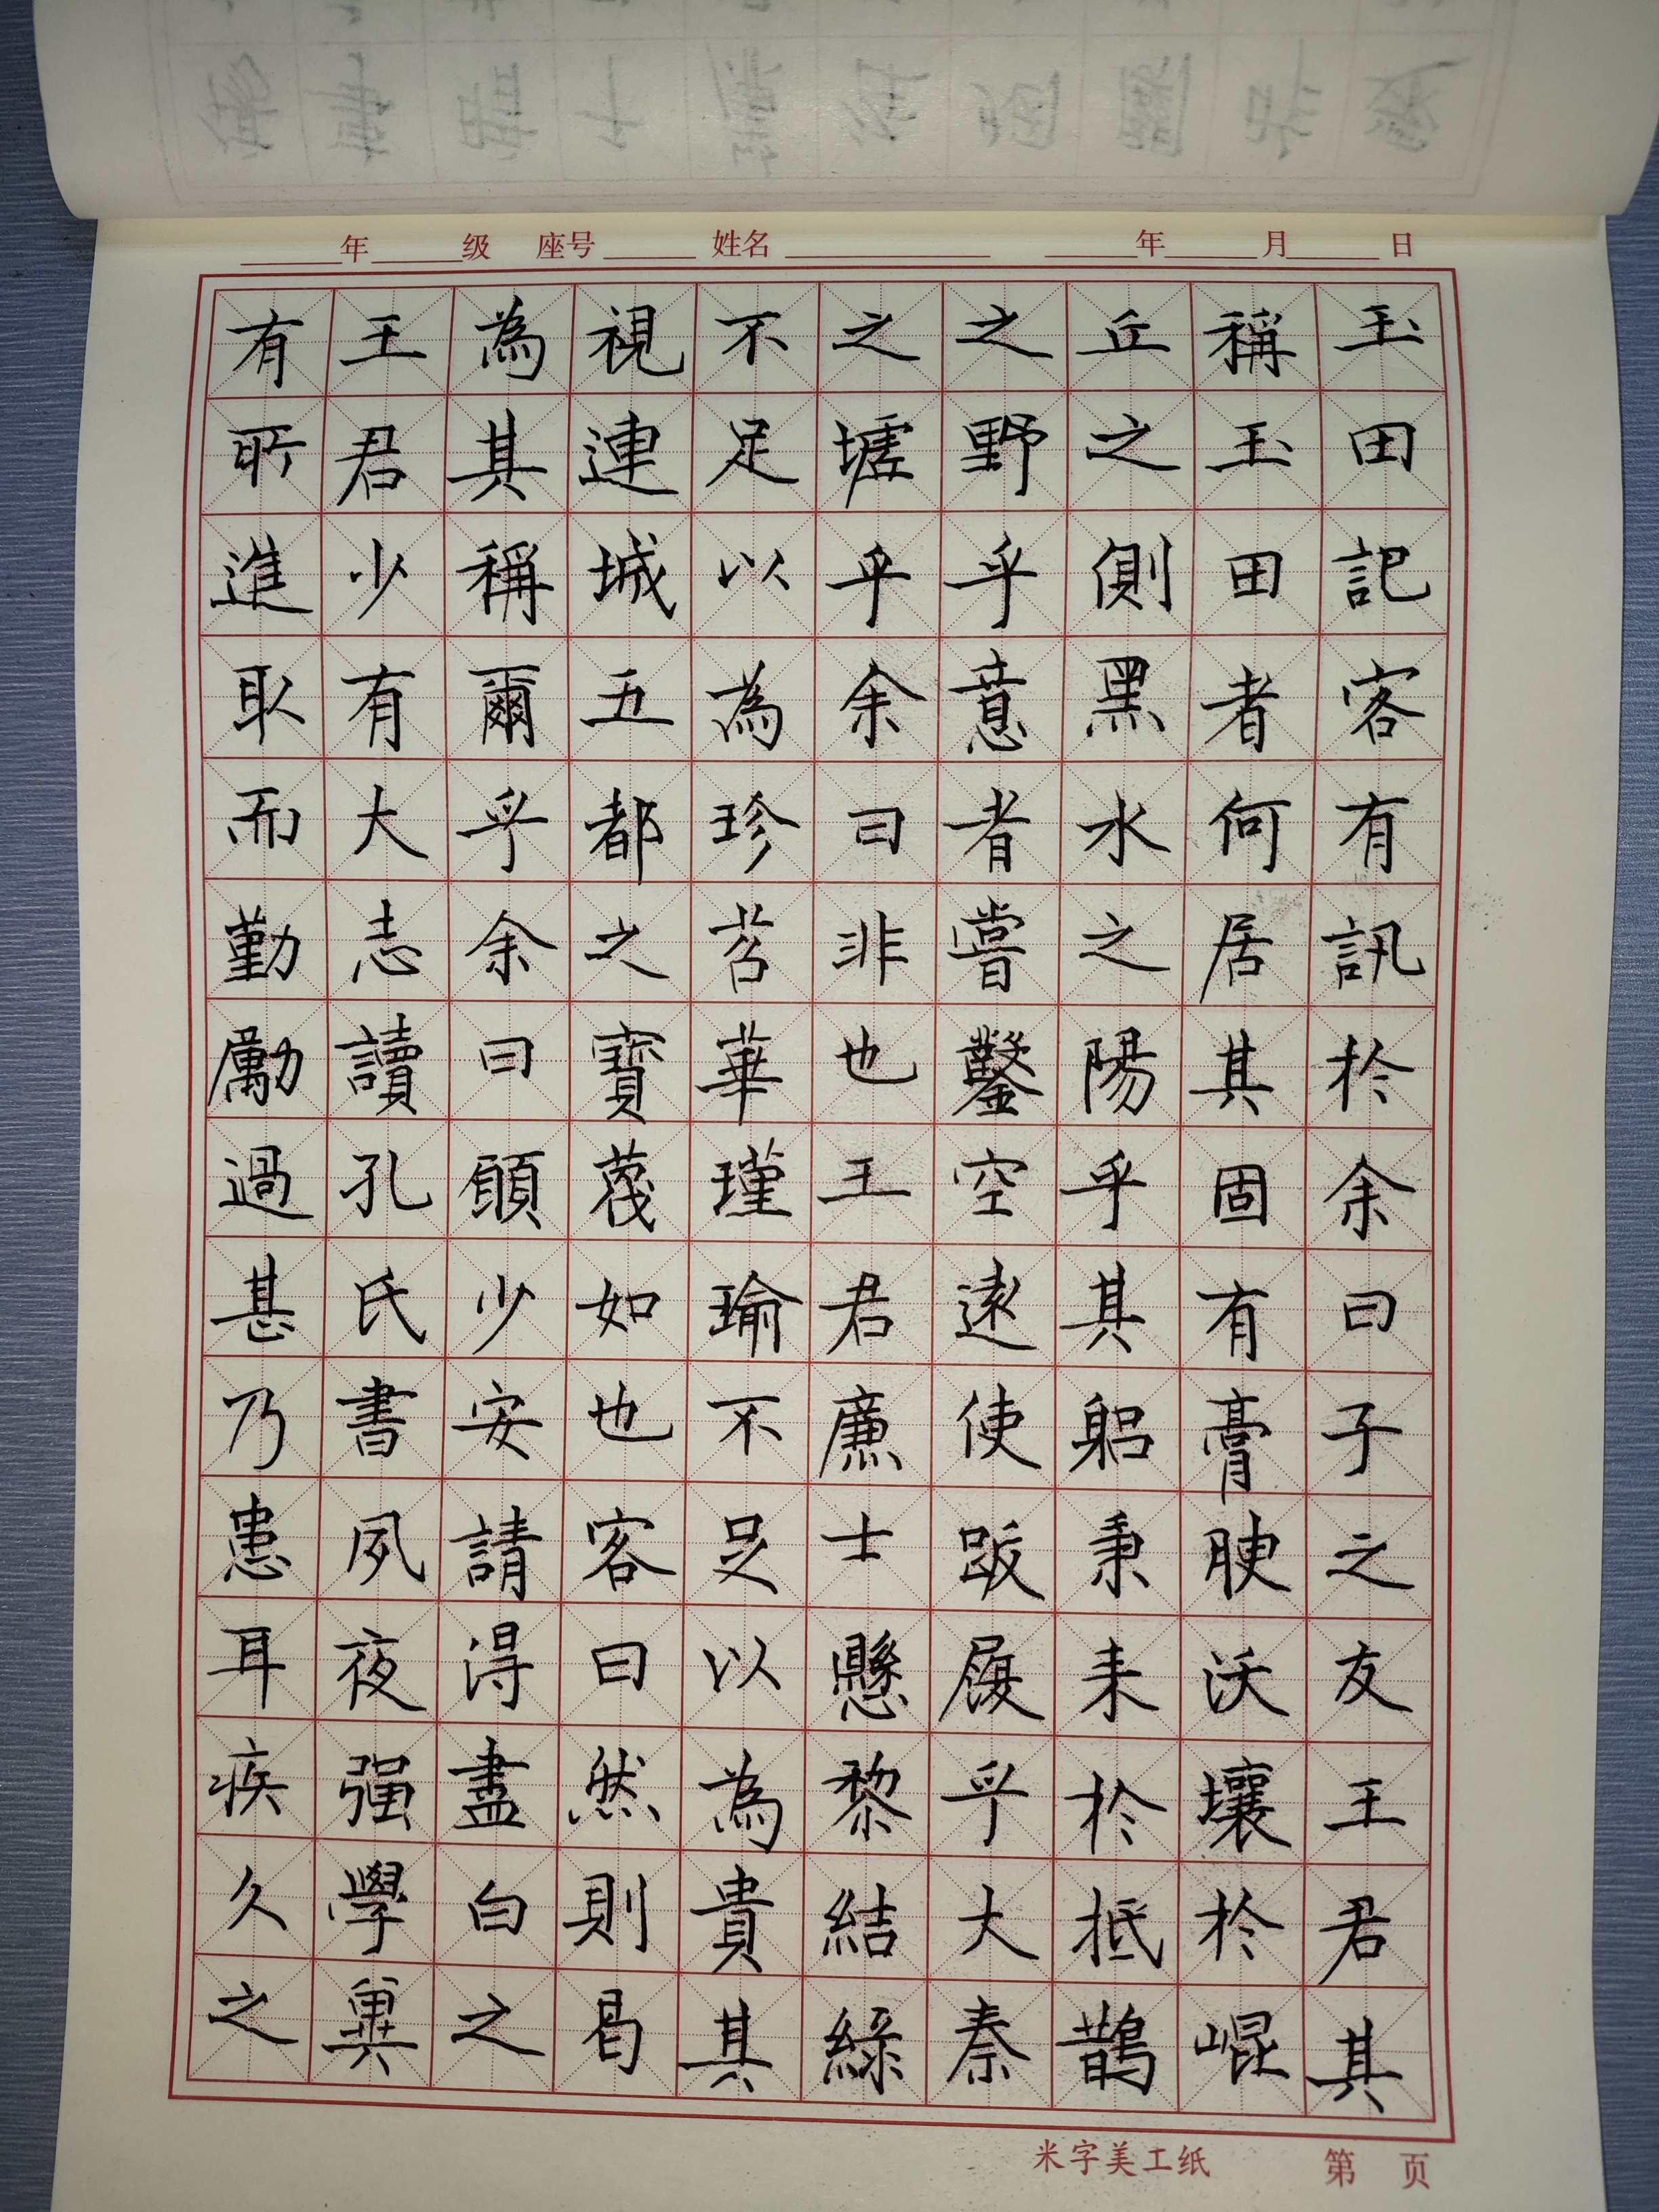 年 级 座号 姓名 年 月 日
玉田記客有訊於余曰子之友王君其
稱玉田者何居其固有膏腴沃壤於崐
丘之側黑水之陽乎其躬秉耒於抵鵲
之野乎意者嘗鑿空遠使跋履乎大秦
之墟乎余曰非也王君廉士懸黎結綠
不足以為珍苕華瑾瑜不足以為貴其
視連城五都之寶蔑如也客曰然則曷
為其稱爾乎余曰頤少安請得盡白之
王君少有大志讀孔氏書夙夜强學冀
有所進取而勤勵過甚乃患耳疾久之
米字美工纸 第 页